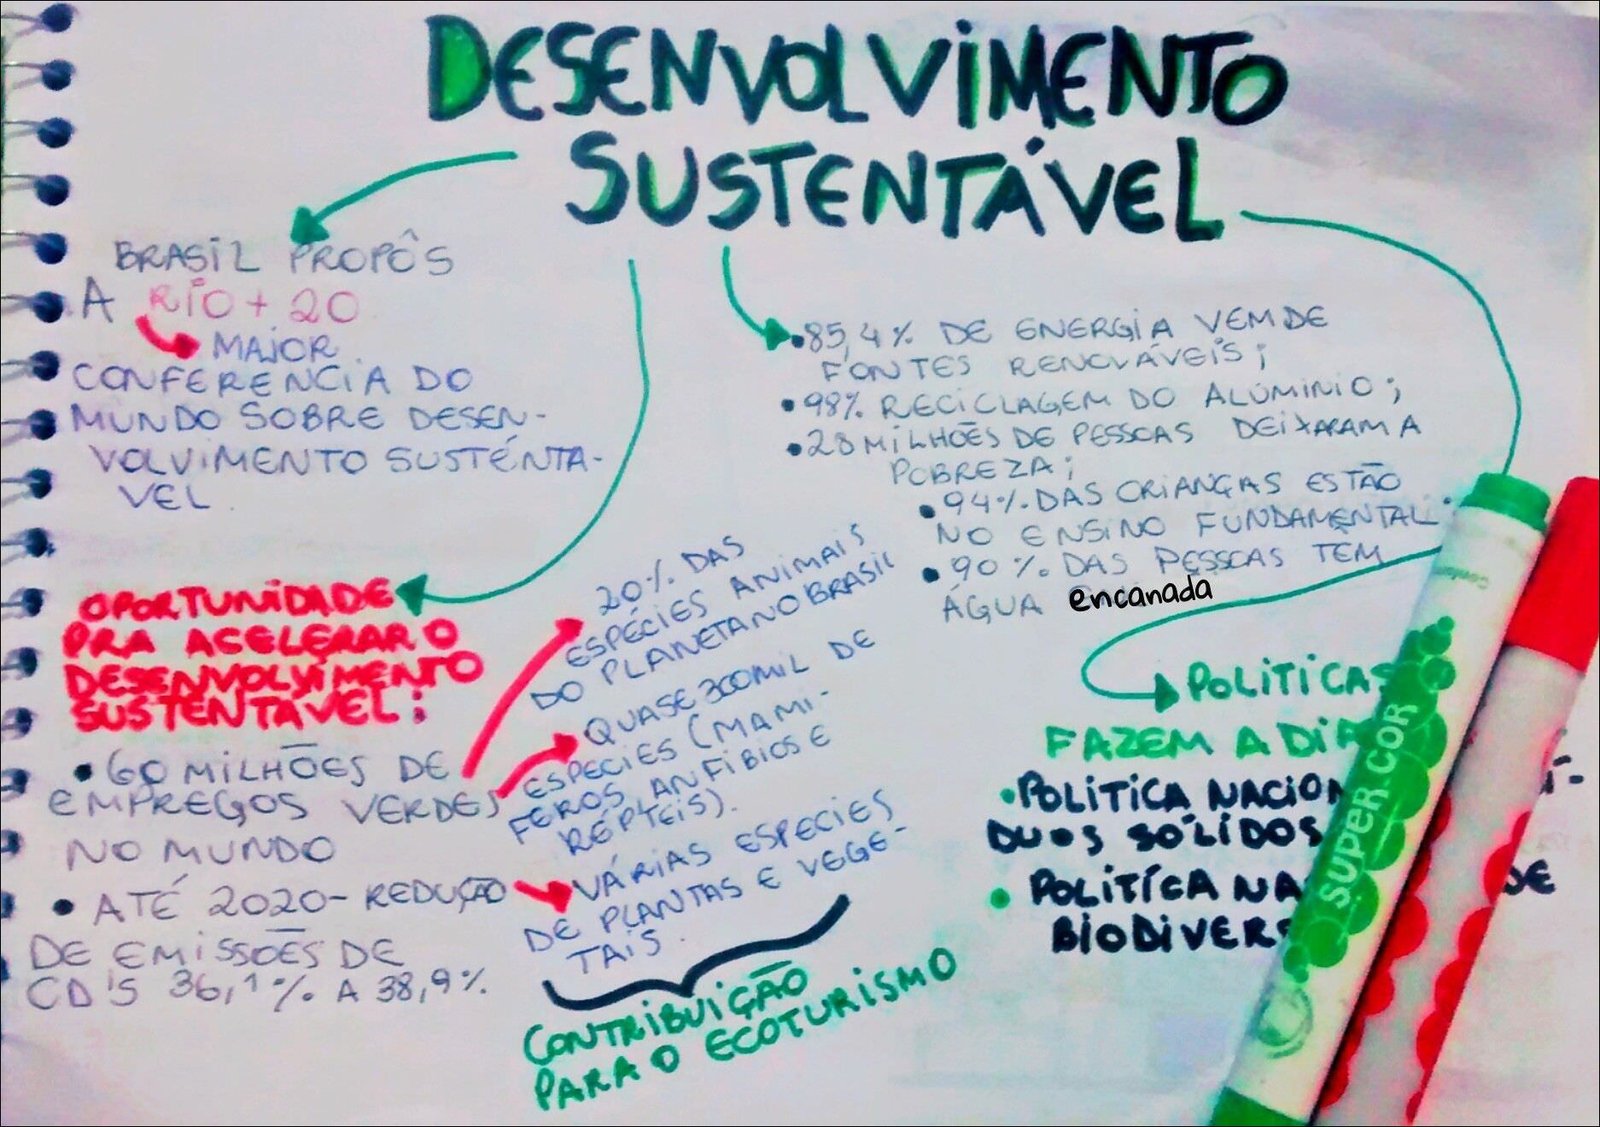 DESENVOLVIMENTO
SUSTENTÁVEL
BRASIL PROPÔS
A RIO + 20
MAIOR
CONFERENCIA DO
MUNDO SOBRE DESEN-
VOLVIMENTO SUSTÉNTA-
VEL
• 85,4% DE ENERGIA VEM DE
FONTES RENOVÁVEIS;
• 98% RECICLAGEM DO ALUMINIO;
• 28 MILHÕES DE PESSOAS DEIXARAM A
POBREZA;
• 94% DAS CRIANÇAS ESTÃO
NO ENSINO FUNDAMENTAL
• 90% DAS PESSOAS TEM
ÁGUA encanada
OPORTUNIDADE
PRA ACELERAR O
DESENVOLVIMENTO
SUSTENTÁVEL:
• 60 MILHÕES DE
EMPREGOS VERDES
NO MUNDO
• ATÉ 2020 - REDUÇÃO
DE EMISSÕES DE
CD'S 36,1% A 38,9%
20% DAS
ESPÉCIES ANIMAIS
DO PLANETA NO BRASIL
QUASE 300 MIL DE
ESPECIES (MAMI-
FEROS, ANFIBIOS E
RÉPTEIS).
VÁRIAS ESPECIES
DE PLANTAS E VEGE-
TAIS.
CONTRIBUIÇÃO
PARA O ECOTURISMO
POLITICAS
FAZEM A DIF
• POLITICA NACION
DUOS SÓLIDOS
• POLITÍCA NA DE
BIODIVERS
SUPER.COR